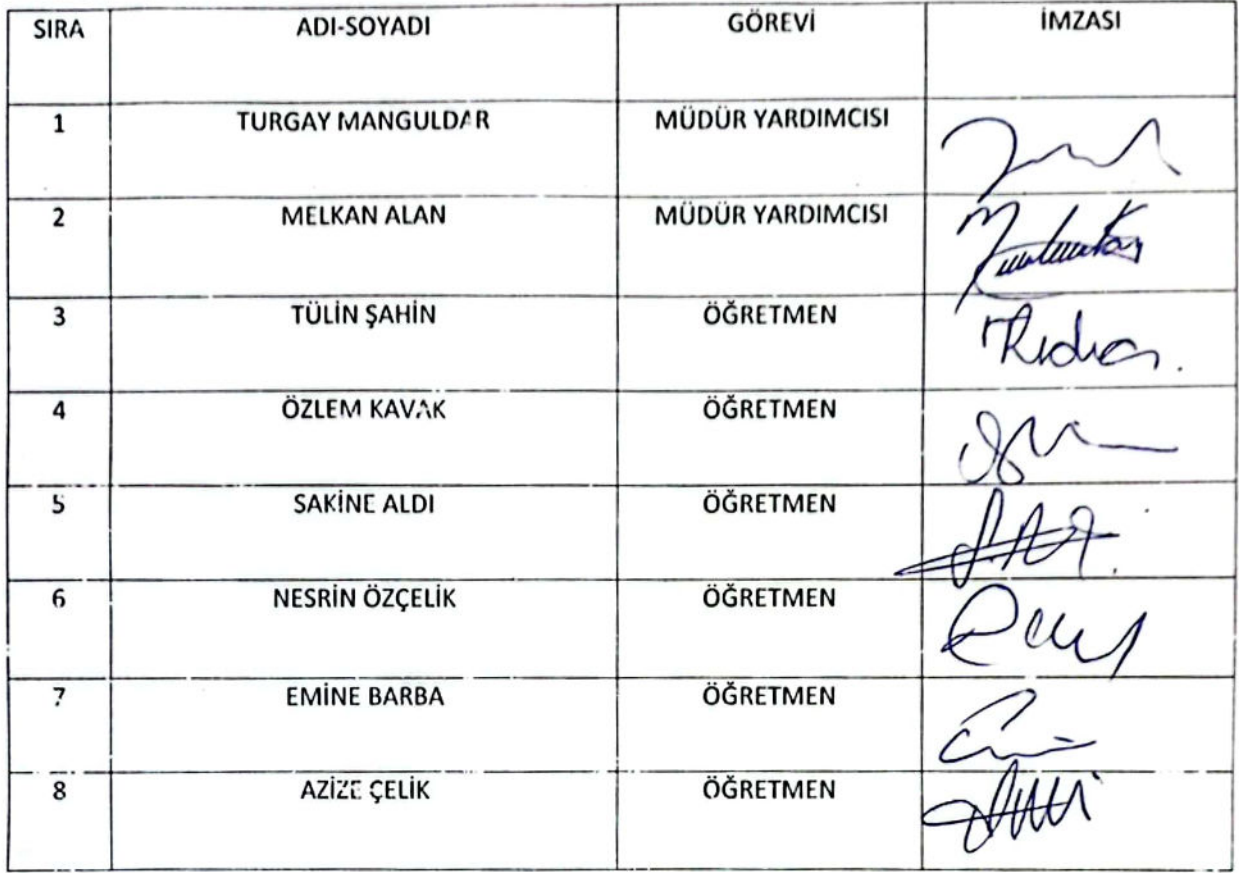 SIRA ADI-SOYADI GÖREVİ İMZASI
1 TURGAY MANGULDAR MÜDÜR YARDIMCISI
2 MELKAN ALAN MÜDÜR YARDIMCISI
3 TÜLİN ŞAHİN ÖĞRETMEN
4 ÖZLEM KAVAK ÖĞRETMEN
5 SAKİNE ALDI ÖĞRETMEN
6 NESRİN ÖZÇELİK ÖĞRETMEN
7 EMİNE BARBA ÖĞRETMEN
8 AZİZE ÇELİK ÖĞRETMEN